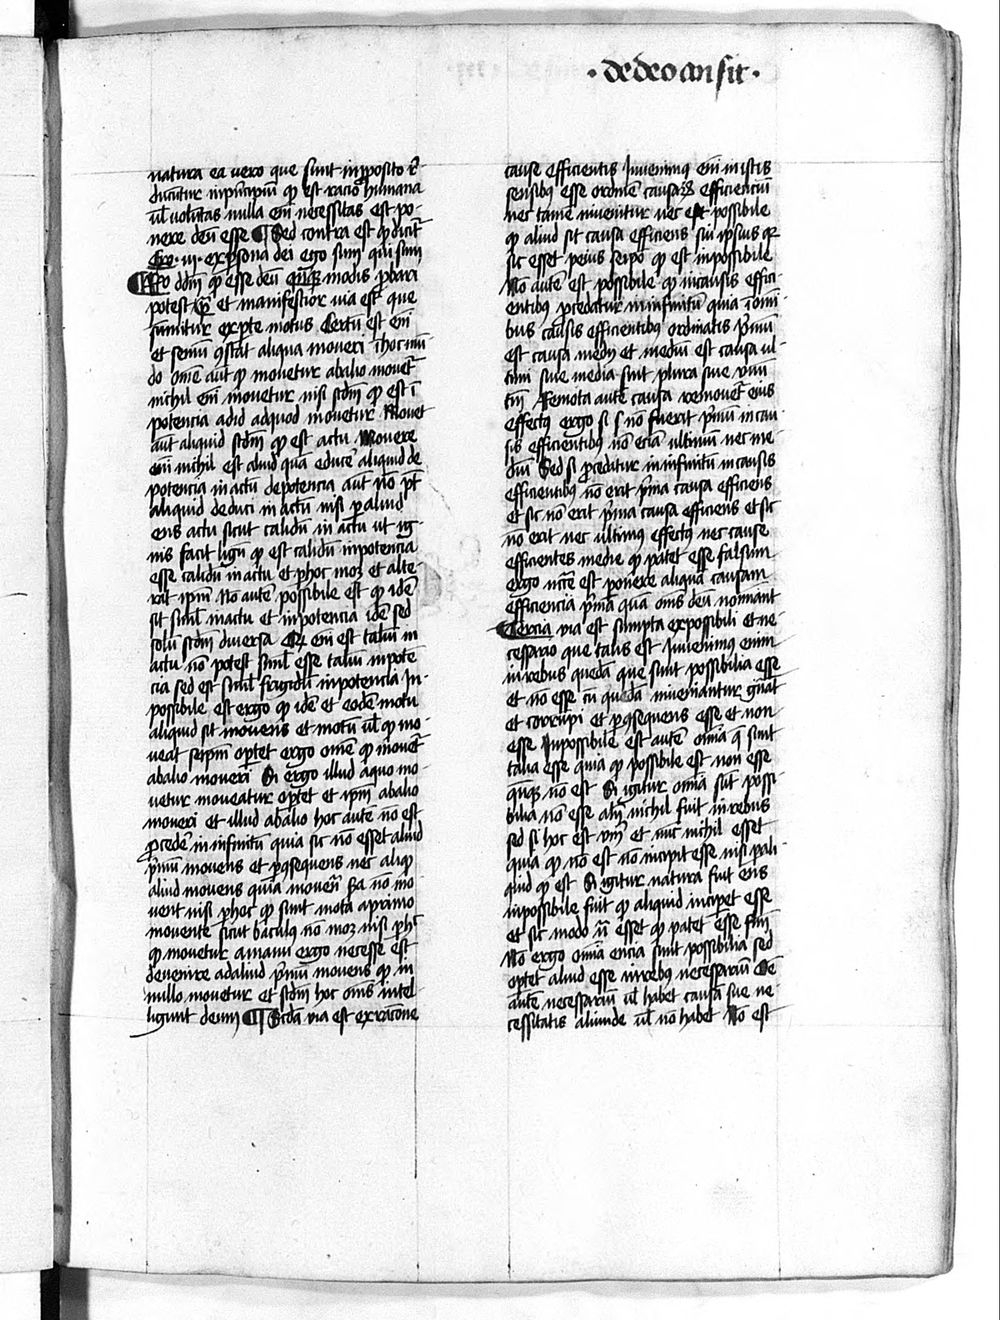 · de deo an sit ·
natura ea vero que sunt in pposito r̄
ducūtur in pncipiū qd̄ est racio humana
ul̄ volūtas nulla em̄ necessitas est po-
nere deū esse ¶ Sed contra est qd̄ dicit̄
Exo · iii · ex psona dei ego sum qui sum
Rō dd̄m qd̄ esse deū qnqȝ modis pbari
potest pa et manifestior via est que
sumitur ex pte motus Certū est em̄
et sensu ꝯstat aliqua moveri ī hoc mū
do omē aūt qd̄ movetur ab alio movet̄
nichil em̄ movetur nisi scdm̄ qd̄ est ī
potencia ad id ad quod movetur Movet
aūt aliquid scdm̄ qd̄ est actu Movere
em̄ nichil est aliud quā educē aliquid de
potencia in actū de potencia aūt nō pt̄
aliquid deduci in actū nisi p aliud
ens actu sicut calidū in actu ut ig-
nis facit lignū qd̄ est calidū in potencia
esse calidū in actu et p hoc moȝ et alte
rat ipm̄ Nō autē possibile est qd̄ idē
sit siml̄ in actu et in potencia idē sed
solū scdm̄ diversa Qd̄ em̄ est talium in
actu nō potest siml̄ esse talium in potē
cia sed est siml̄ frigidū in potencia Im-
possibile est ergo qd̄ idē et eodē motu
aliquid sit movens et motū ul̄ qd̄ mo-
veat seipm̄ optet ergo omē qd̄ movet̄
ab alio moveri Si ergo illud a quo mo-
vetur moveatur optet et ipm̄ ab alio
moveri et illud ab alio hoc autē nō est
pcedē in infinitū quia sic nō esset aliud
pmū movens et p ꝯsequens nec aliqd̄
aliud movens quia movēn̄ sa nō mo
vent nisi p hoc qd̄ sunt mota a primo
movente sicut baculȝ nō moȝ nisi p hͨ
qd̄ movetur a manu ergo necesse est
devenire ad aliud pmū movens qd̄ in
nullo movetur et scdm̄ hoc om̄s intel-
ligunt deum ¶ Scda via est ex racōne
cause efficientis Invenimȝ em̄ in istis
sensibȝ esse ordinē causaꝝ efficienciū
nec tamē invenitur nec est possibile
qd̄ aliud sit causa efficiens sui ipsius qȝ
sic esset prius seipō qd̄ est inpossibile
Nō autē est possibile qd̄ in causis effici-
entibȝ pcedatur in infinitū quia ī omī-
bus causis efficientibȝ ordinatis pmū
est causa medij et mediū est causa ul-
timi sive media sint plura sive unū
tm̄ Remota autē causa removet̄ eius
effectȝ ergo si s nō fuerit pmū in cau-
sis efficientibȝ nō erit ultimū nec me
diū Sed si pceditur in infinitū in causis
efficientibȝ nō erit pma causa efficiens
et sic nō erit pma causa efficiens et sic
nō erit nec ultimȝ effectȝ nec cause
efficientes medie qd̄ patet esse falsum
ergo ncēe est ponere aliquā causam
efficiencia pmā quā om̄s deū nominant
Tercia via est sumpta ex possibili et ne
cessario que talis est Invenimus enim
in rebus quedā que sunt possibilia esse
et nō esse cū quedā inveniantur gnāt
et corrupi et p ꝯsequens esse et non
esse Inpossibile est autē omīa q̄ sunt
talia esse quia qd̄ possibile est non esse
qnqȝ nō est Si igitur omīa sūt possi
bilia nō esse aliqn̄ nichil fuit in rebus
sed si hoc est vm̄ et nūc nichil esset
quia qd̄ nō est nō incipit esse nisi p ali-
quid qd̄ est Si igitur natura fuit ens
inpossibile fuit qd̄ aliquid incipet esse
et sic modo n̄ esset qd̄ patet esse fm̄
Nō ergo omīa encia sunt possibilia sed
optet aliud esse in rebȝ necessariū Oē
autē necessariū ul̄ habet causā sue ne-
cessitatis aliunde ul̄ nō habet Nō est